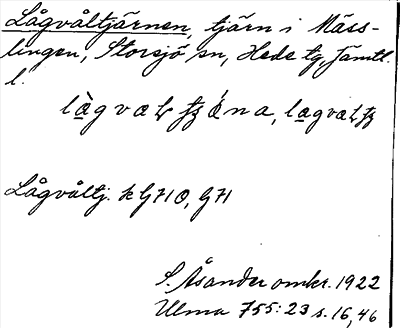 Lågvåltjärnen, tjärn i Mäss-
lingen, Storsjö sn, Hede tg, Jämtl.
l.
Lågvåltj. k G71 O, G71
S. Åsander omkr. 1922
Ulma 755:23 s. 16, 46